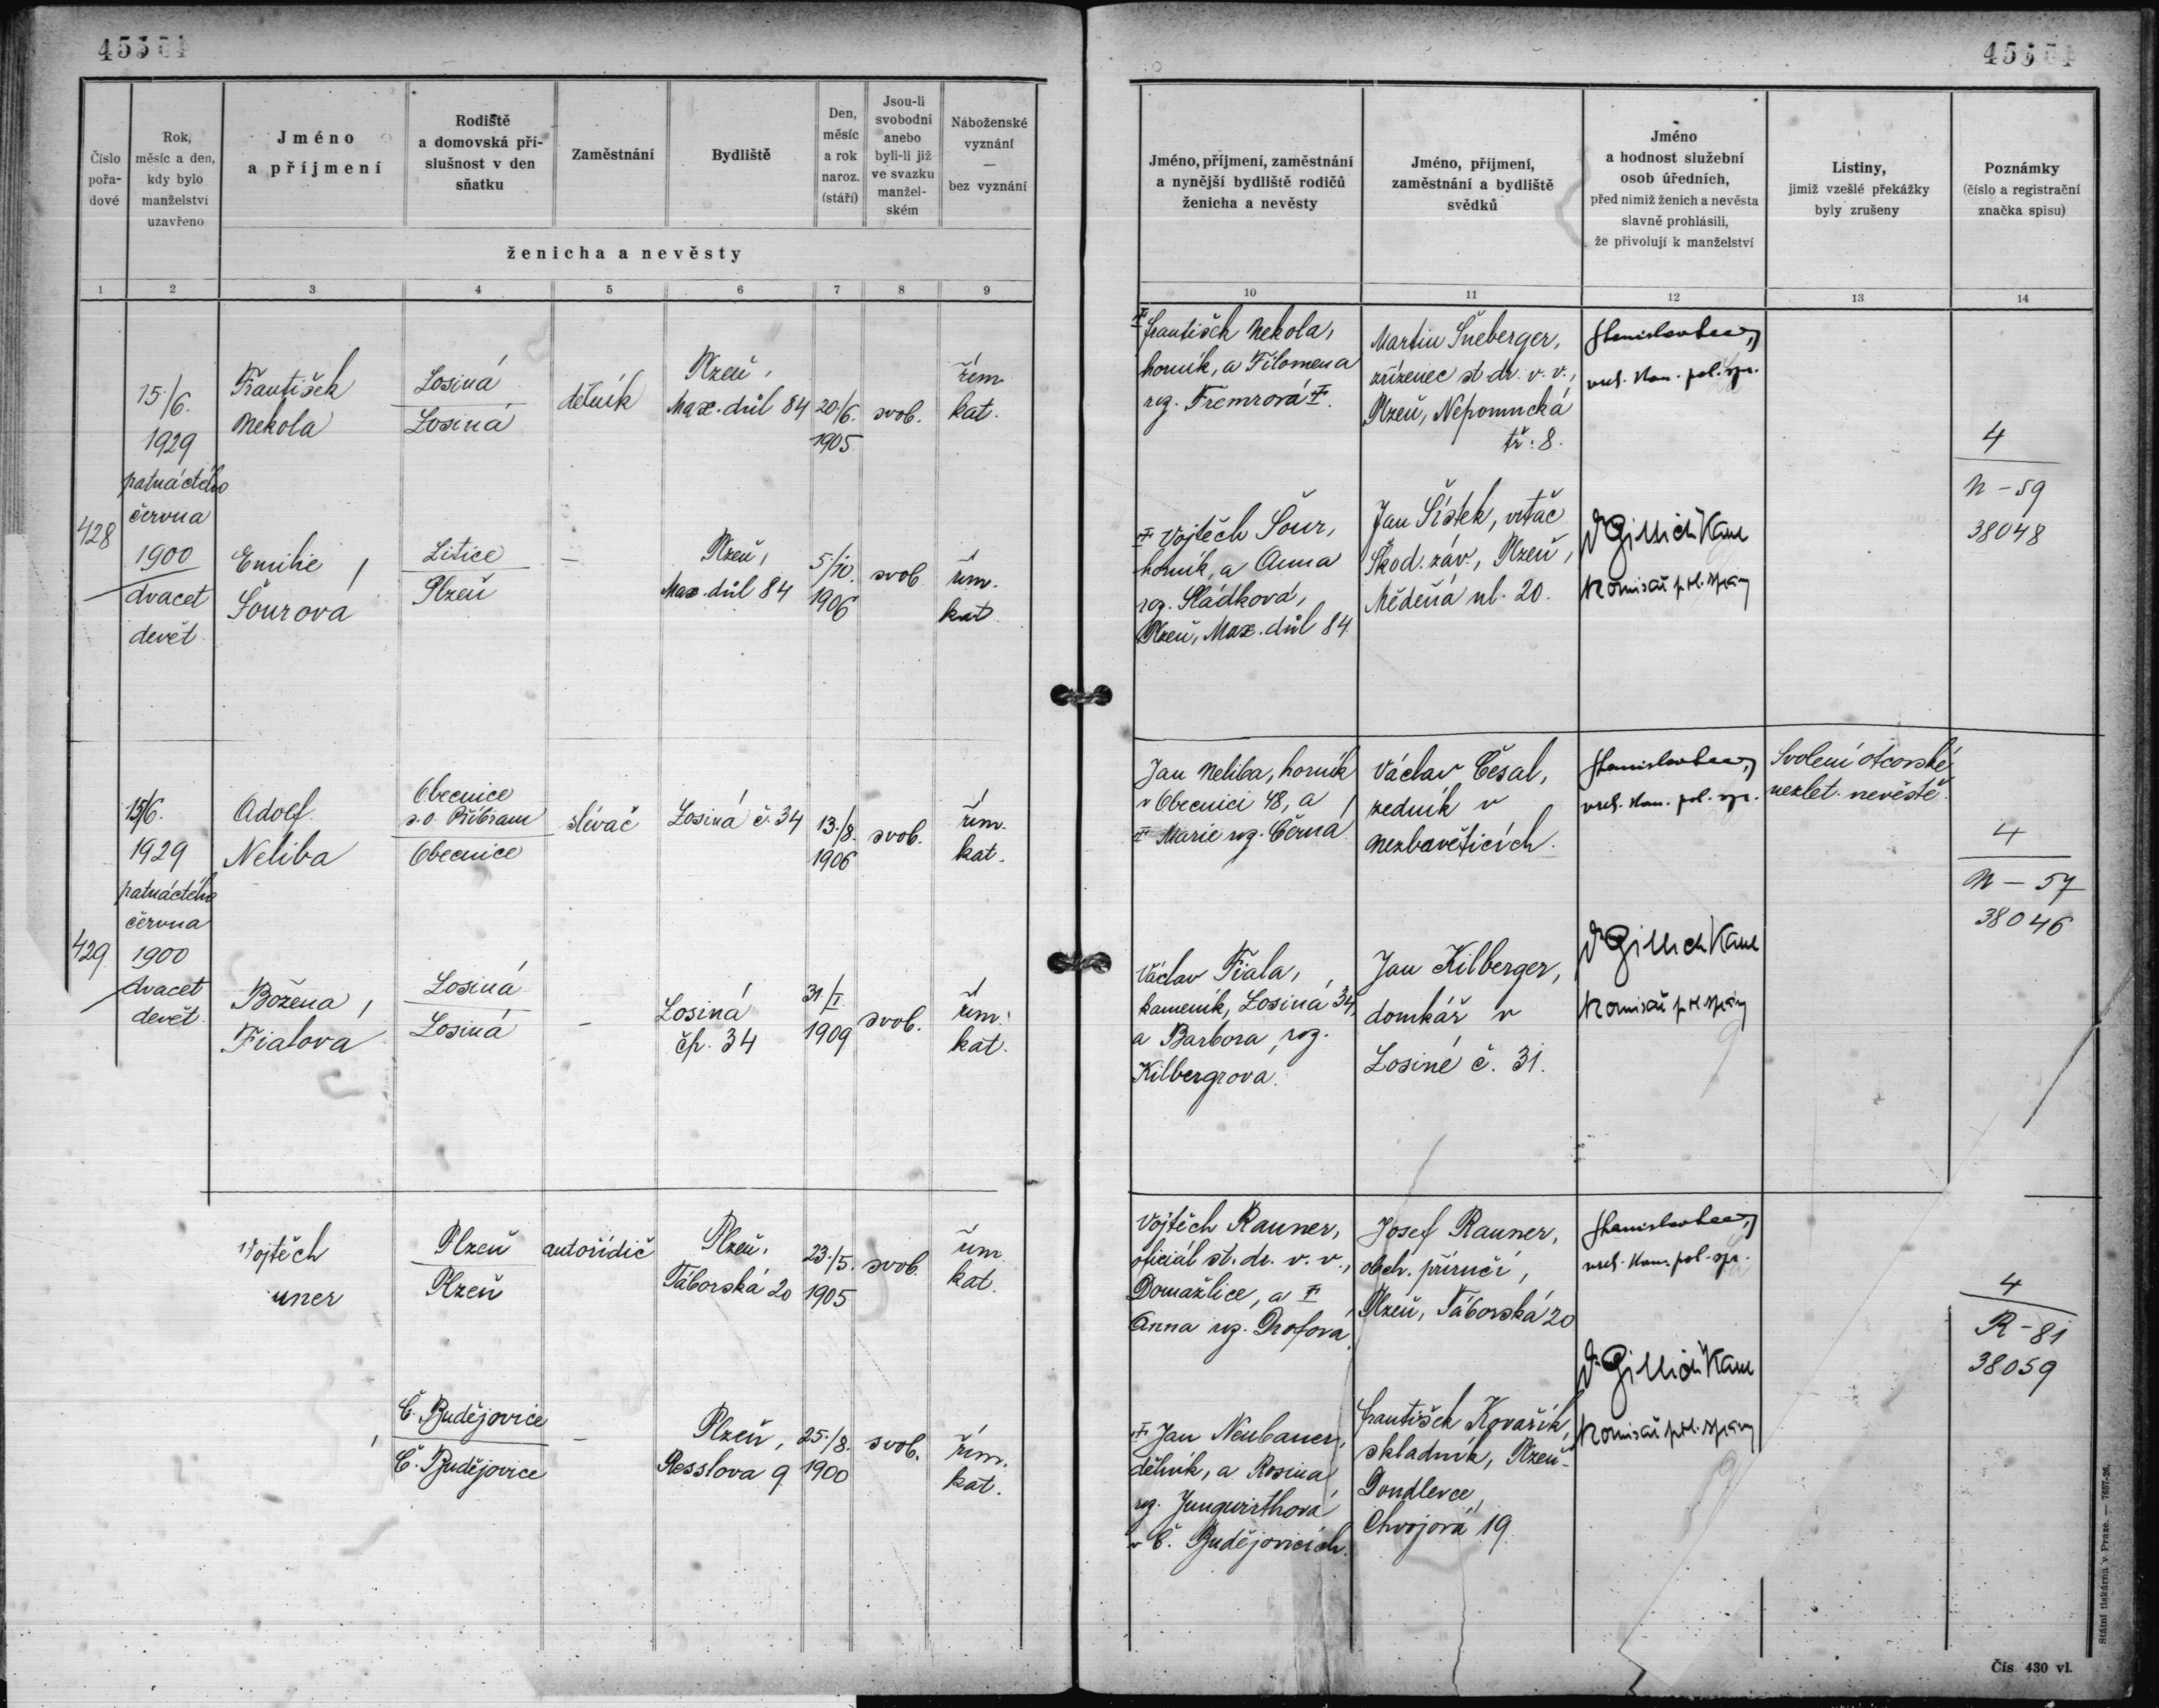 Číslo pořa-
dové
Rok,
měsíc a den,
kdy bylo
manželství
uzavřeno
Jméno
a příjmení
Rodiště
a domovská pří-
slušnost v den
sňatku
Zaměstnání
Bydliště
Den,
měsíc
a rok
naroz.
(stáří)
Jsou-li
svobodni
anebo
byli-li již
ve svazku
manžel-
ském
Náboženské
vyznání
—
bez vyznání
ženicha a nevěsty
1 2 3 4 5 6 7 8 9
428
15./6.
1929
patnáctého
června
1900
dvacet
devět
František
Nekola
Losiná
Losiná
dělník
Plzeň,
Max. důl 84
20./6.
1905
svob.
řím.
kat.
Emilie
Šourová
Litice
Plzeň
—
Plzeň,
Max. důl 84
5./10.
1906
svob.
řím.
kat.
429
15/6.
1929
patnáctého
června
1900
dvacet
devět
Adolf
Neliba
Obecnice
s.o. Příbram
Obecnice
slévač
Losiná č. 34
13./8.
1906
svob.
řím.
kat.
Božena
Fialová
Losiná
Losiná
—
Losiná
čp. 34
31/I.
1909
svob.
řím.
kat.
Vojtěch
uner
Plzeň
Plzeň
autořidič
Plzeň,
Táborská 20
23./5.
1905
svob.
řím.
kat.
Č. Budějovice
Č. Budějovice
—
Plzeň,
Resslova 9
25./8.
1900
svob.
řím.
kat.
Jméno, příjmení, zaměstnání
a nynější bydliště rodičů
ženicha a nevěsty
Jméno, příjmení,
zaměstnání a bydliště
svědků
Jméno
a hodnost služební
osob úředních,
před nimiž ženich a nevěsta
slavně prohlásili,
že přivolují k manželství
Listiny,
jimiž vzešlé překážky
byly zrušeny
Poznámky
(číslo a registrační
značka spisu)
10 11 12 13 14
František Nekola,
horník, a Filomena
roz. Fremrová
Martin Šneberger,
zřízenec st. dr. v. v.,
Plzeň, Nepomucká
tř. 8.
vrch. kom. pol. spr.
4
N - 59
38048
Vojtěch Šour,
horník, a Anna
roz. Sládková,
Plzeň, Max. důl 84
Jan Šístek, vrtač
Škod. záv., Plzeň,
Měděná ul. 20.
Komisař pol. správy
Jan Neliba, horník
v Obecnici 48, a
Marie roz. Černá
Václav Česal,
zedník v
Nezbavěticích.
vrch. kom. pol. spr.
Svolení otcovské
nezlet. nevěstě.
4
N - 57
38046
Václav Fiala,
kameník, Losiná 34,
a Barbora, roz.
Kilbergrová.
Jan Kilberger,
domkář v
Losiné č. 31.
Komisař pol. správy
Vojtěch Rauner,
oficiál st. dr. v. v.,
Domažlice, a
Anna roz.
Josef Rauner,
obch. příručí,
Plzeň, Táborská 20
vrch. kom. pol. spr.
4
R - 81
38059
Jan Neubauer,
dělník, a Rosina
roz. Jungwirthová
v Č. Budějovicích.
František Kovařík,
skladník, Plzeň-
Doudlevce,
Chvojová 19.
Komisař pol. správy
Státní tiskárna v Praze. — 7657-26.
Čís. 430 vl.